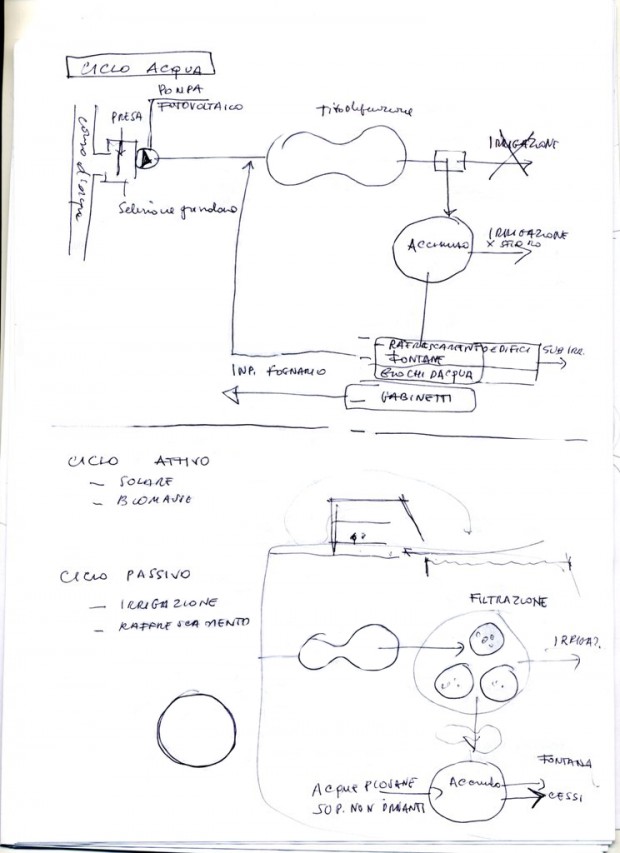 CICLO ACQUA
POMPA
FOTOVOLTAICO
PRESA
corso d'acqua
Selezione grandezza
fitodepurazione
IRRIGAZIONE
ACCUMULO
IRRIGAZIONE
X
RAFFRESCAMENTO EDIFICI
FONTANE
GIOCHI D'ACQUA
SUB IRR.
IMP. FOGNARIO
GABINETTI
CICLO ATTIVO
— SOLARE
— BIOMASSE
CICLO PASSIVO
— IRRIGAZIONE
— RAFFRESCAMENTO
FILTRAZIONE
IRRIGAZ.
ACQUE PIOVANE
SUP. NON INQUINANTI
Accumulo
FONTANA
CESSI